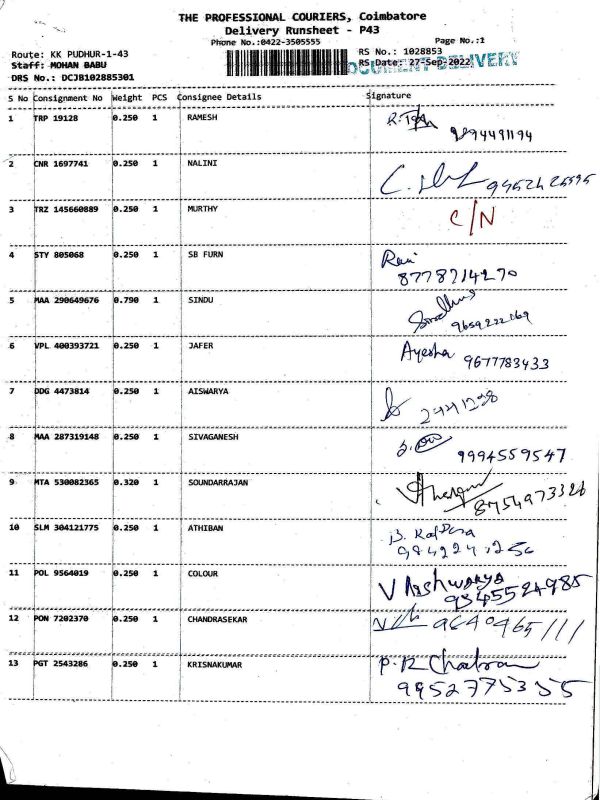 THE PROFESSIONAL COURIERS, Coimbatore
Delivery Runsheet - P43
Phone No.:0422-3505555
Page No.:1
Route: KK PUDHUR-1-43
RS No.: 1028853
Staff: MOHAN BABU
RS Date: 27-Sep-2022
DOCUMENT DELIVERY
DRS No.: DCJB102885301
S No Consignment No Weight PCS Consignee Details Signature
1 TRP 19128 0.250 1 RAMESH
2 CNR 1697741 0.250 1 NALINI
3 TRZ 145660889 0.250 1 MURTHY C/N
4 STY 805068 0.250 1 SB FURN Ravi
8778714270
5 MAA 290649676 0.790 1 SINDU
9659222269
6 VPL 400393721 0.250 1 JAFER Ayesha 9677783433
7 DDG 4473814 0.250 1 AISWARYA
8 MAA 287319148 0.250 1 SIVAGANESH
9994559547
9 MTA 530082365 0.320 1 SOUNDARRAJAN
8754973326
10 SLM 304121775 0.250 1 ATHIBAN
11 POL 9564019 0.250 1 COLOUR V Aishwarya
9345524985
12 PON 7202370 0.250 1 CHANDRASEKAR
13 PGT 2543286 0.250 1 KRISNAKUMAR
9952775355